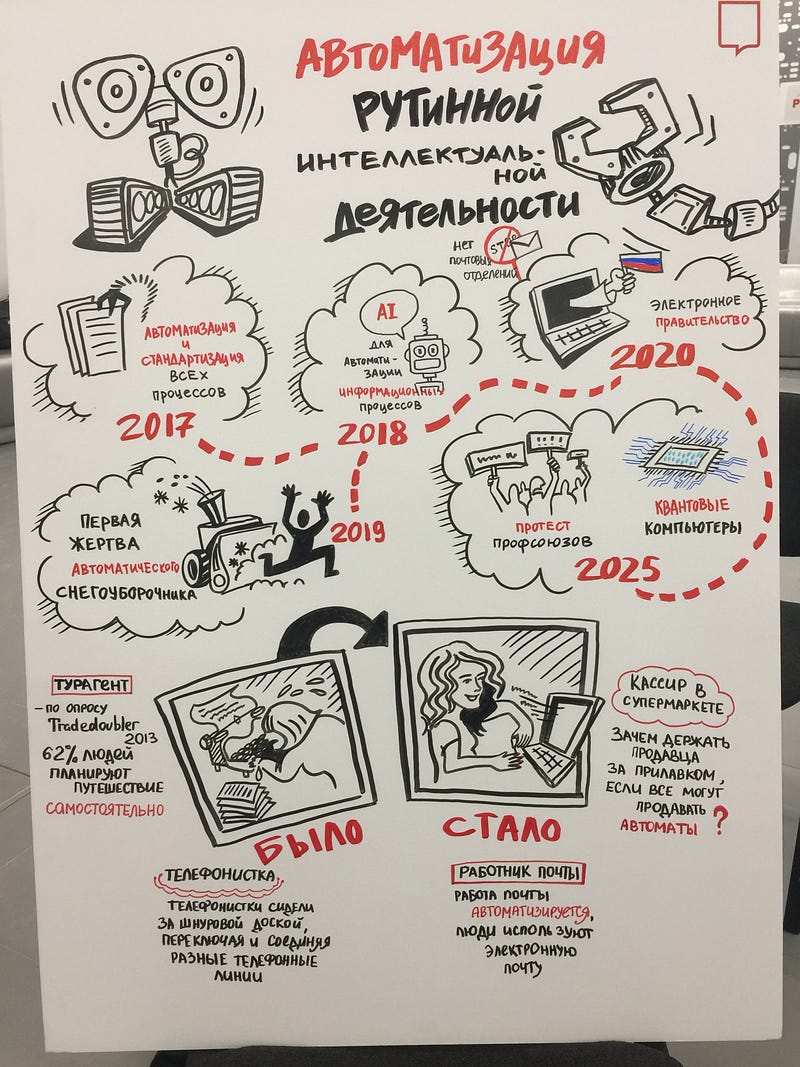 АВТОМАТИЗАЦИЯ
РУТИННОЙ
ИНТЕЛЛЕКТУАЛЬ-
НОЙ
ДЕЯТЕЛЬНОСТИ
НЕТ
ПОЧТОВЫХ
ОТДЕЛЕНИЙ
STOP
ЭЛЕКТРОННОЕ
ПРАВИТЕЛЬСТВО
2020
АВТОМАТИЗАЦИЯ
И
СТАНДАРТИЗАЦИЯ
ВСЕХ
ПРОЦЕССОВ
2017
AI
ДЛЯ
АВТОМАТИ-
ЗАЦИИ
ИНФОРМАЦИОННЫХ
ПРОЦЕССОВ
2018
ПЕРВАЯ
ЖЕРТВА
АВТОМАТИЧЕСКОГО
СНЕГОУБОРОЧНИКА
2019
ПРОТЕСТ
ПРОФСОЮЗОВ
КВАНТОВЫЕ
КОМПЬЮТЕРЫ
2025
ТУРАГЕНТ
– ПО ОПРОСУ
Tradedoubler
2013
62% ЛЮДЕЙ
ПЛАНИРУЮТ
ПУТЕШЕСТВИЕ
САМОСТОЯТЕЛЬНО
БЫЛО
СТАЛО
КАССИР В
СУПЕРМАРКЕТЕ
ЗАЧЕМ ДЕРЖАТЬ
ПРОДАВЦА
ЗА ПРИЛАВКОМ,
ЕСЛИ ВСЕ МОГУТ
ПРОДАВАТЬ
АВТОМАТЫ ?
ТЕЛЕФОНИСТКА
ТЕЛЕФОНИСТКИ СИДЕЛИ
ЗА ШНУРОВОЙ ДОСКОЙ,
ПЕРЕКЛЮЧАЯ И СОЕДИНЯЯ
РАЗНЫЕ ТЕЛЕФОННЫЕ
ЛИНИИ
РАБОТНИК ПОЧТЫ
РАБОТА ПОЧТЫ
АВТОМАТИЗИРУЕТСЯ,
ЛЮДИ ИСПОЛЬЗУЮТ
ЭЛЕКТРОННУЮ
ПОЧТУ